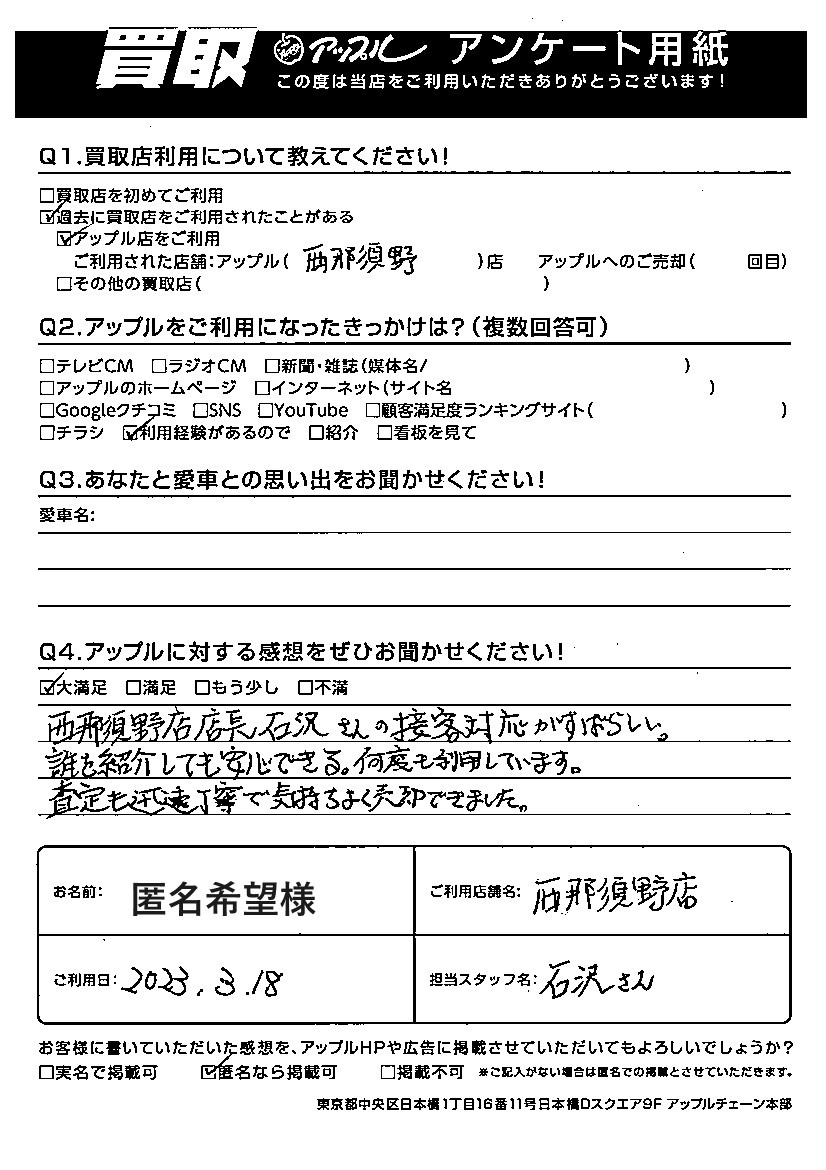 買取 アップル アンケート用紙
この度は当店をご利用いただきありがとうございます!
Q1.買取店利用について教えてください!
□買取店を初めてご利用
☑過去に買取店をご利用されたことがある
☑アップル店をご利用
ご利用された店舗:アップル( 西那須野 )店 アップルへのご売却( 回目)
□その他の買取店( )
Q2.アップルをご利用になったきっかけは?(複数回答可)
□テレビCM □ラジオCM □新聞・雑誌(媒体名/ )
□アップルのホームページ □インターネット(サイト名 )
□Googleクチコミ □SNS □YouTube □顧客満足度ランキングサイト( )
□チラシ ☑利用経験があるので □紹介 □看板を見て
Q3.あなたと愛車との思い出をお聞かせください!
愛車名:
Q4.アップルに対する感想をぜひお聞かせください!
☑大満足 □満足 □もう少し □不満
西那須野店店長石沢さんの接客対応がすばらしい。
誰を紹介しても安心できる。何度も利用しています。
査定も迅速丁寧で気持ちよく売却できました。
お名前: 匿名希望様 ご利用店舗名: 西那須野店
ご利用日: 2023.3.18 担当スタッフ名: 石沢さん
お客様に書いていただいた感想を、アップルHPや広告に掲載させていただいてもよろしいでしょうか?
□実名で掲載可 ☑匿名なら掲載可 □掲載不可 ※ご記入がない場合は匿名での掲載とさせていただきます。
東京都中央区日本橋1丁目16番11号日本橋Dスクエア9F アップルチェーン本部